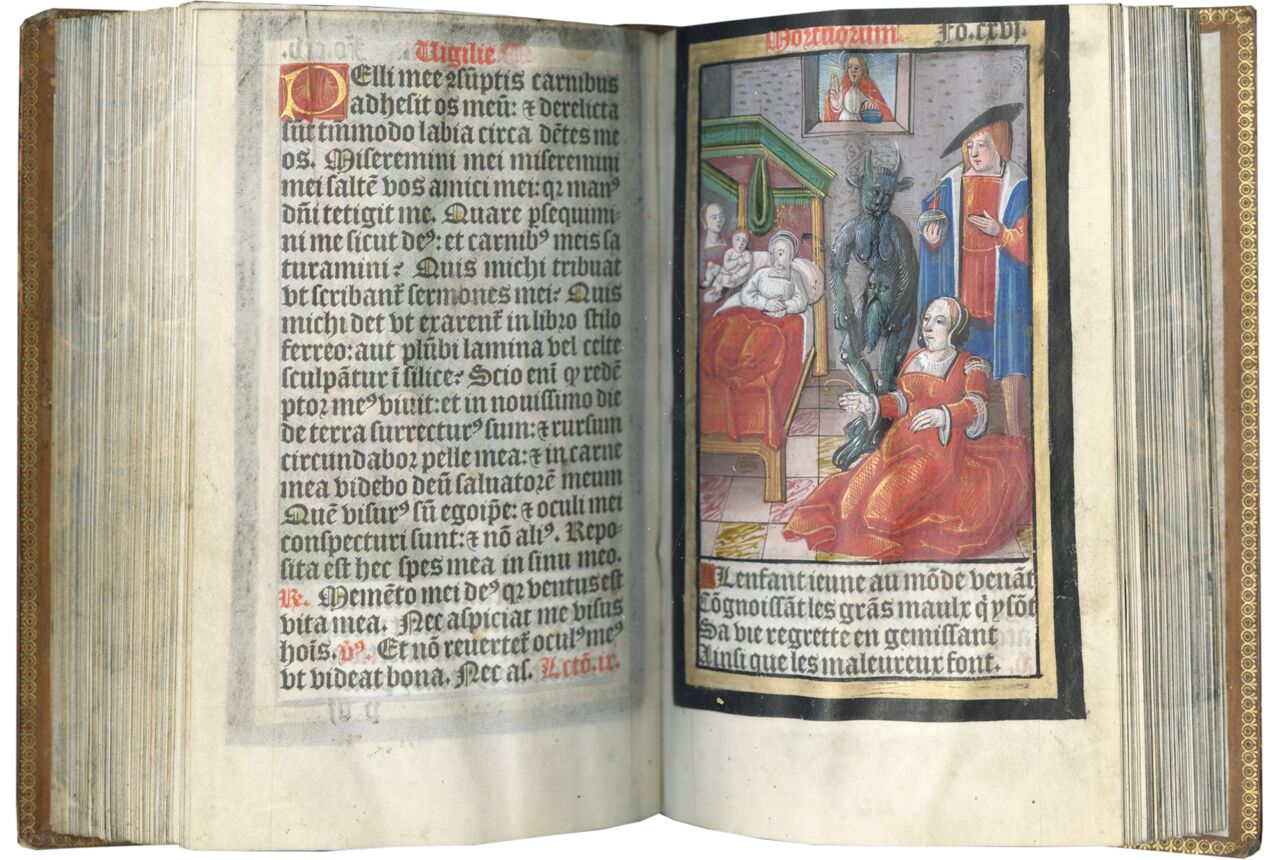 Vigilie
PElli mee ꝯsũptis carnibus
adhesit os meũ: ⁊ derelicta
sũt tmmodo labia circa dẽtes me
os. Miseremini mei miseremini
mei saltẽ vos amici mei: qꝛ manꝰ
dñi tetigit me. Quare ꝑsequimi-
ni me sicut deꝰ: et carnibꝰ meis sa
turamini? Quis michi tribuat
vt scribant̃ sermones mei? Quis
michi det vt exarent̃ in libro stilo
ferreo: aut plũbi lamina vel celte
sculpãtur ĩ silice? Scio eni ꝙ redẽ
ptoꝛ meꝰ viuit: et in nouissimo die
de terra surrecturꝰ sum: ⁊ rursum
circundaboꝛ pelle mea: ⁊ in carne
mea videbo deũ saluatoꝛẽ meum
Quẽ visurꝰ sũ ego ip̃e: ⁊ oculi mei
conspecturi sunt: ⁊ nõ aliꝰ. Repo-
sita est hec spes mea in sinu meo.
R. Memẽto mei deꝰ qꝛ ventus est
vita mea. Nec aspiciat me visus
hoĩs. v̾ꝰ. Et nõ reuertet̃ oculꝰ meꝰ
vt videat bona. Nec as. Lctõ.ix.
Mortuorum Fo.cxvj.
ALenfant ieune au mõde venãt
Cõgnoissãt les grãs maulx q̃ y sõt
Sa vie regrette en gemissant
Ainsi que les maleureux font.